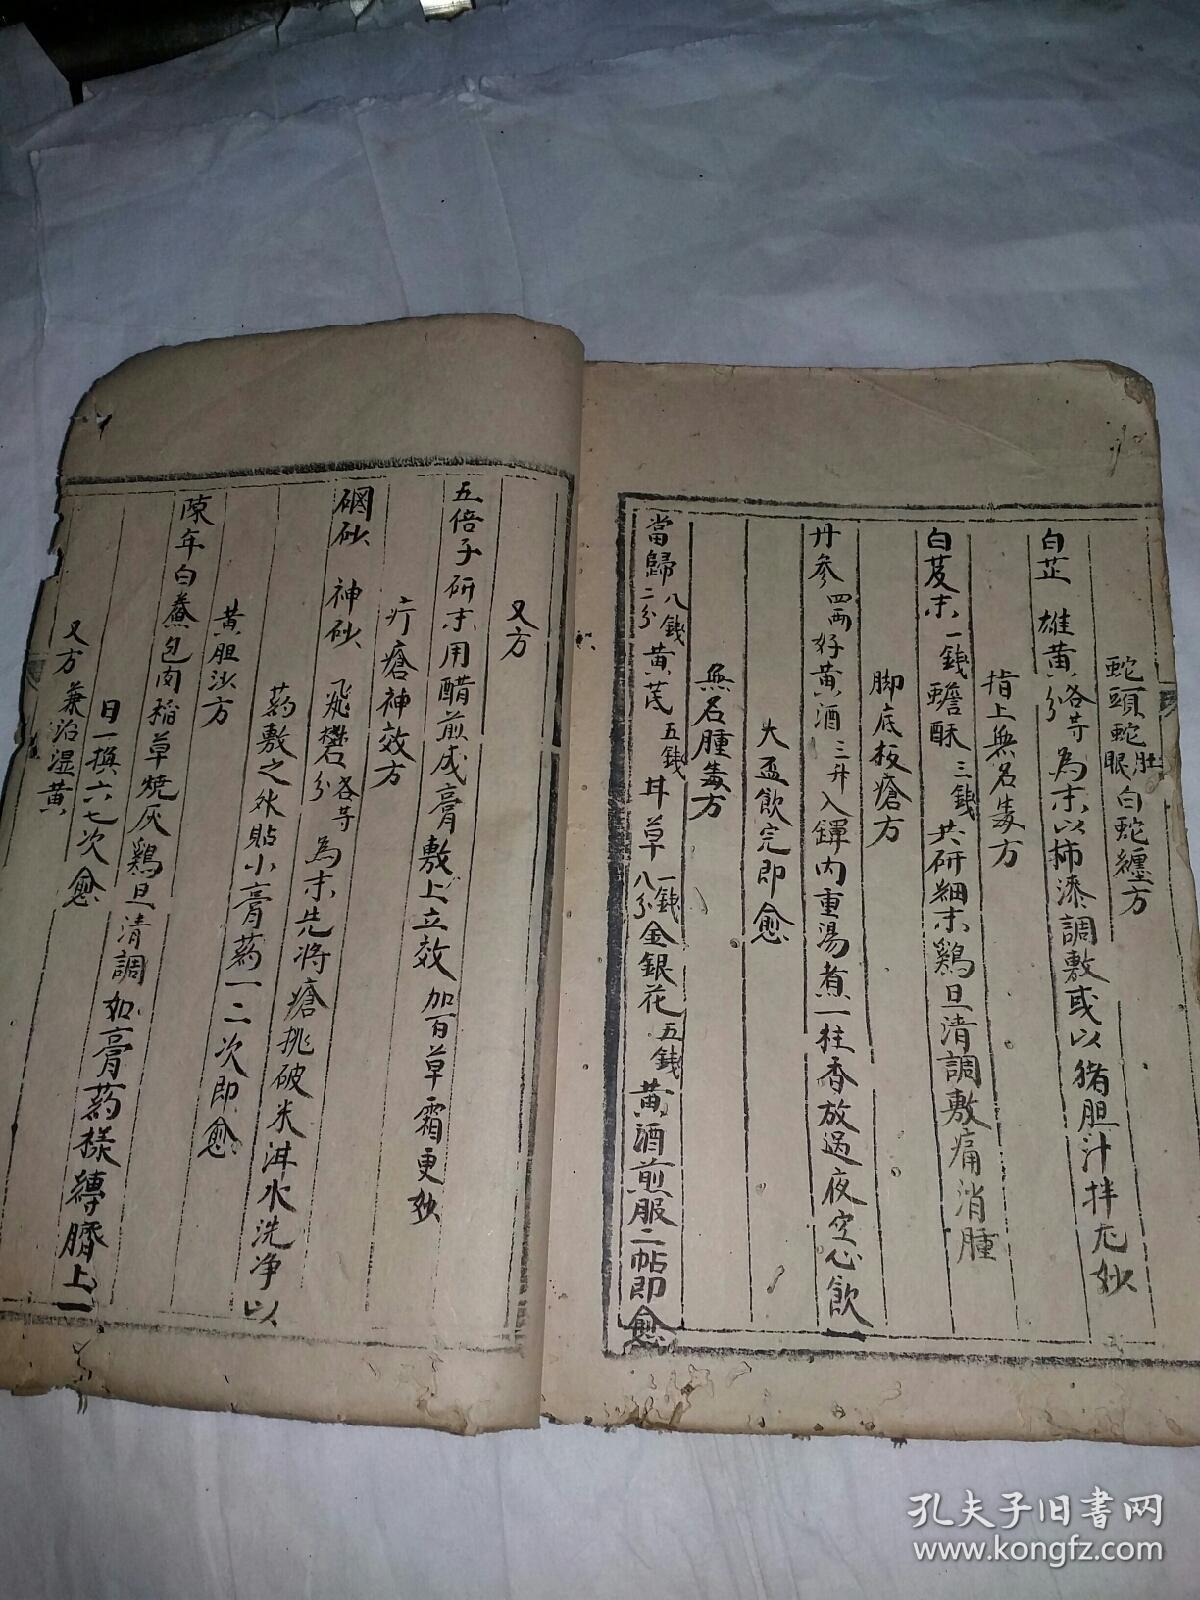 蛇頭蛇眼蛇肚白蛇纏方
白芷 雄黃各等分為末以柿漆調敷或以猪胆汁拌尤妙
指上無名毒方
白芨末一錢蟾酥三錢共研細末鷄旦清調敷痛消腫
脚底板瘡方
丹參四两好黃酒三升入鑵内重湯煮一柱香放過夜空心飲一
大盃飲完即愈
無名腫毒方
當歸八錢二分黃芪五錢甘草一錢八分金銀花五錢黃酒煎服二帖即愈
又方
五倍子研末用醋煎成膏敷上立效加百草霜更妙
疔瘡神效方
硇砂 神砂 飛礬各等分為末先將瘡挑破米泔水洗净以
药敷之外貼小膏药一二次即愈
黃胆沙方
陳年白鯗包肉稻草燒灰鷄旦清調如膏药樣縛臍上一
日一換六七次愈
又方兼治湿黃
孔夫子旧书网
www.kongfz.com